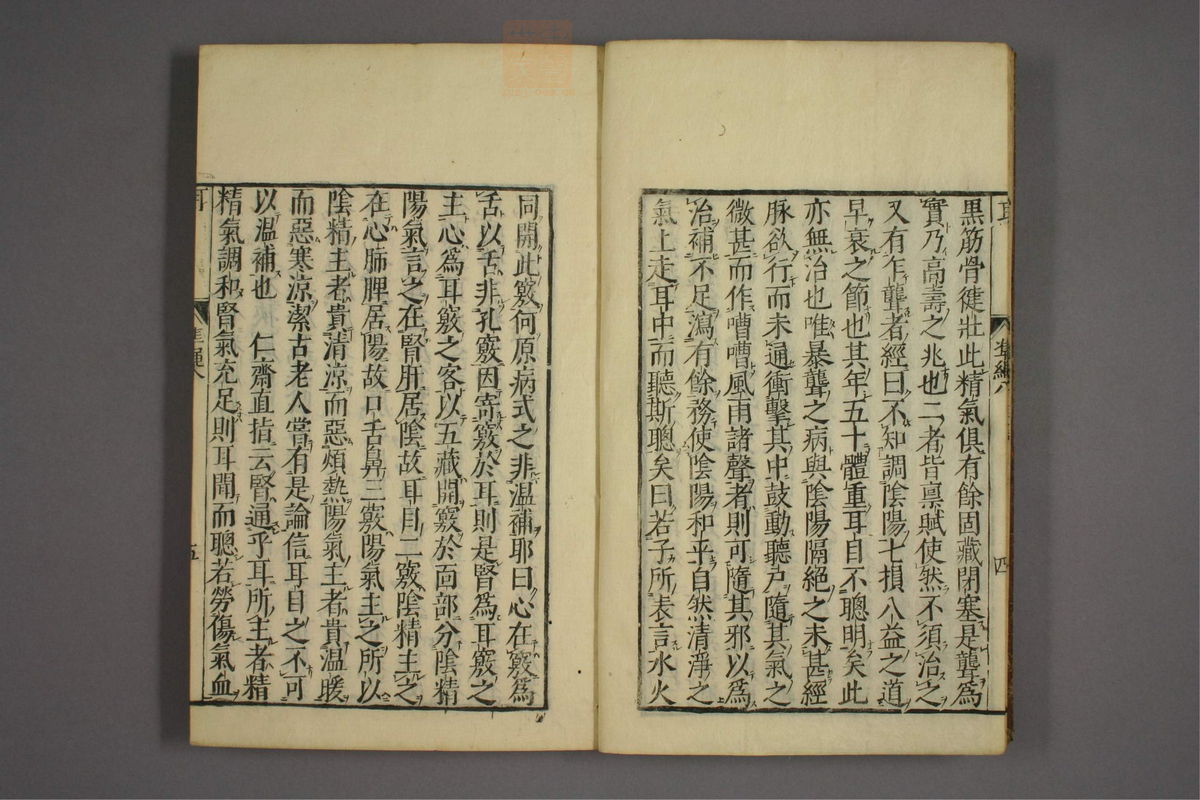 黒筋骨健壯此精氣俱有餘固藏閉塞是聾爲
實乃高壽之兆也二者皆稟賦使然不須治之
又有乍聾者經曰不知調陰陽七損八益之道
早衰之節也其年五十體重耳目不聰明矣此
亦無治也唯暴聾之病與陰陽隔絕之未甚經
脉欲行而未通衝擊其中鼓動聽戸隨其氣之
微甚而作嘈嘈風雨諸聲者則可隨其邪以爲
治補不足瀉有餘務使陰陽和平自然清淨之
氣上走耳中而聽斯聰矣曰若子所表言水火
四
同開此竅何原病式之非温補耶曰心在竅爲
舌以舌非孔竅因寄竅於耳則是腎爲耳竅之
主心爲耳竅之客以五藏開竅於面部分陰精
陽氣言之在腎肝居陰故耳目二竅陰精主之
在心肺脾居陽故口舌鼻三竅陽氣主之所以
陰精主者貴清涼而惡煩熱陽氣主者貴温暖
而惡寒涼潔古老人嘗有是論信耳目之不可
以温補也　仁齋直指云腎通乎耳所主者精
精氣調和腎氣充足則耳聞而聰若勞傷氣血
耳
五